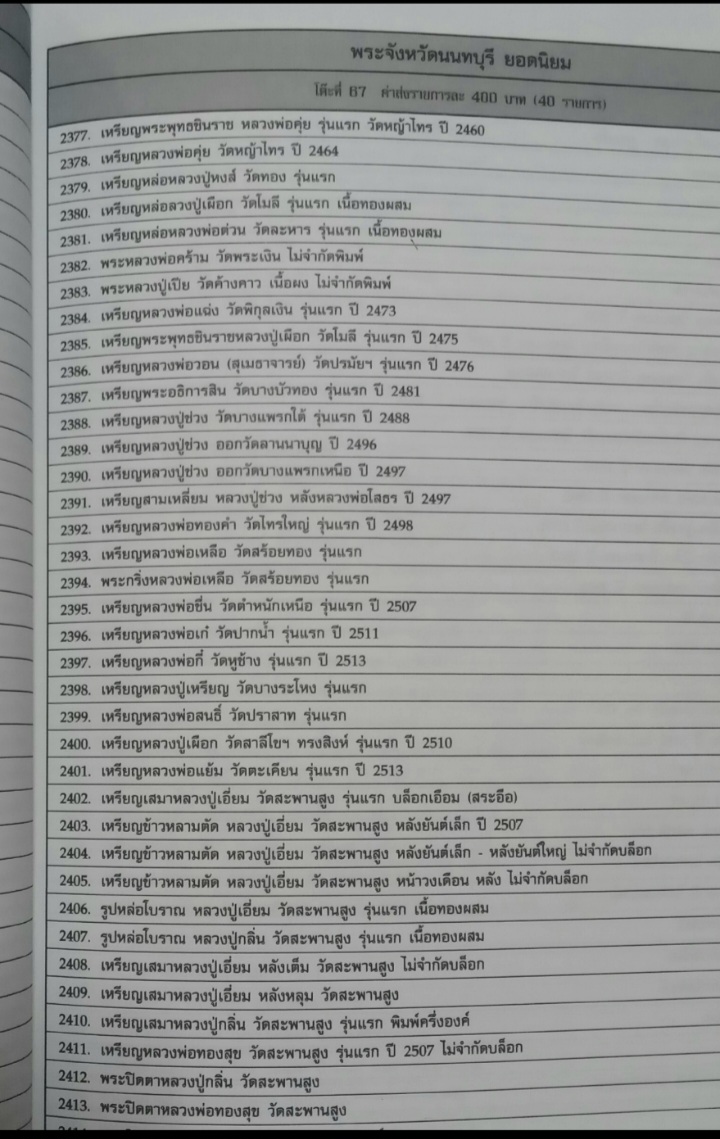 พระจังหวัดนนทบุรี ยอดนิยม
โต๊ะที่ 67 ค่าส่งรายการละ 400 บาท (40 รายการ)
2377. เหรียญพระพุทธชินราช หลวงพ่อคุ่ย รุ่นแรก วัดหญ้าไทร ปี 2460
2378. เหรียญหลวงพ่อคุ่ย วัดหญ้าไทร ปี 2464
2379. เหรียญหล่อหลวงปู่หงส์ วัดทอง รุ่นแรก
2380. เหรียญหล่อลวงปู่เผือก วัดโมลี รุ่นแรก เนื้อทองผสม
2381. เหรียญหล่อหลวงพ่อด่วน วัดละหาร รุ่นแรก เนื้อทองผสม
2382. พระหลวงพ่อคร้าม วัดพระเงิน ไม่จำกัดพิมพ์
2383. พระหลวงปู่เปีย วัดค้างคาว เนื้อผง ไม่จำกัดพิมพ์
2384. เหรียญหลวงพ่อแฉ่ง วัดพิกุลเงิน รุ่นแรก ปี 2473
2385. เหรียญพระพุทธชินราชหลวงปู่เผือก วัดโมลี รุ่นแรก ปี 2475
2386. เหรียญหลวงพ่อวอน (สุเมธาจารย์) วัดปรมัยฯ รุ่นแรก ปี 2476
2387. เหรียญพระอธิการสิน วัดบางบัวทอง รุ่นแรก ปี 2481
2388. เหรียญหลวงปู่ช่วง วัดบางแพรกใต้ รุ่นแรก ปี 2488
2389. เหรียญหลวงปู่ช่วง ออกวัดลานนาบุญ ปี 2496
2390. เหรียญหลวงปู่ช่วง ออกวัดบางแพรกเหนือ ปี 2497
2391. เหรียญสามเหลี่ยม หลวงปู่ช่วง หลังหลวงพ่อโสธร ปี 2497
2392. เหรียญหลวงพ่อทองคำ วัดไทรใหญ่ รุ่นแรก ปี 2498
2393. เหรียญหลวงพ่อเหลือ วัดสร้อยทอง รุ่นแรก
2394. พระกริ่งหลวงพ่อเหลือ วัดสร้อยทอง รุ่นแรก
2395. เหรียญหลวงพ่อชื่น วัดตำหนักเหนือ รุ่นแรก ปี 2507
2396. เหรียญหลวงพ่อเก๋ วัดปากน้ำ รุ่นแรก ปี 2511
2397. เหรียญหลวงพ่อกี๋ วัดหูช้าง รุ่นแรก ปี 2513
2398. เหรียญหลวงปู่เหรียญ วัดบางระโหง รุ่นแรก
2399. เหรียญหลวงพ่อสนธิ์ วัดปราสาท รุ่นแรก
2400. เหรียญหลวงปู่เผือก วัดสาลีโขฯ ทรงสิงห์ รุ่นแรก ปี 2510
2401. เหรียญหลวงพ่อแย้ม วัดตะเคียน รุ่นแรก ปี 2513
2402. เหรียญเสมาหลวงปู่เอี่ยม วัดสะพานสูง รุ่นแรก บล็อกเอือม (สระอือ)
2403. เหรียญข้าวหลามตัด หลวงปู่เอี่ยม วัดสะพานสูง หลังยันต์เล็ก ปี 2507
2404. เหรียญข้าวหลามตัด หลวงปู่เอี่ยม วัดสะพานสูง หลังยันต์เล็ก - หลังยันต์ใหญ่ ไม่จำกัดบล็อก
2405. เหรียญข้าวหลามตัด หลวงปู่เอี่ยม วัดสะพานสูง หน้าวงเดือน หลัง ไม่จำกัดบล็อก
2406. รูปหล่อโบราณ หลวงปู่เอี่ยม วัดสะพานสูง รุ่นแรก เนื้อทองผสม
2407. รูปหล่อโบราณ หลวงปู่กลิ่น วัดสะพานสูง รุ่นแรก เนื้อทองผสม
2408. เหรียญเสมาหลวงปู่เอี่ยม หลังเต็ม วัดสะพานสูง ไม่จำกัดบล็อก
2409. เหรียญเสมาหลวงปู่เอี่ยม หลังหลุม วัดสะพานสูง
2410. เหรียญเสมาหลวงปู่กลิ่น วัดสะพานสูง รุ่นแรก พิมพ์ครึ่งองค์
2411. เหรียญหลวงพ่อทองสุข วัดสะพานสูง รุ่นแรก ปี 2507 ไม่จำกัดบล็อก
2412. พระปิดตาหลวงปู่กลิ่น วัดสะพานสูง
2413. พระปิดตาหลวงพ่อทองสุข วัดสะพานสูง